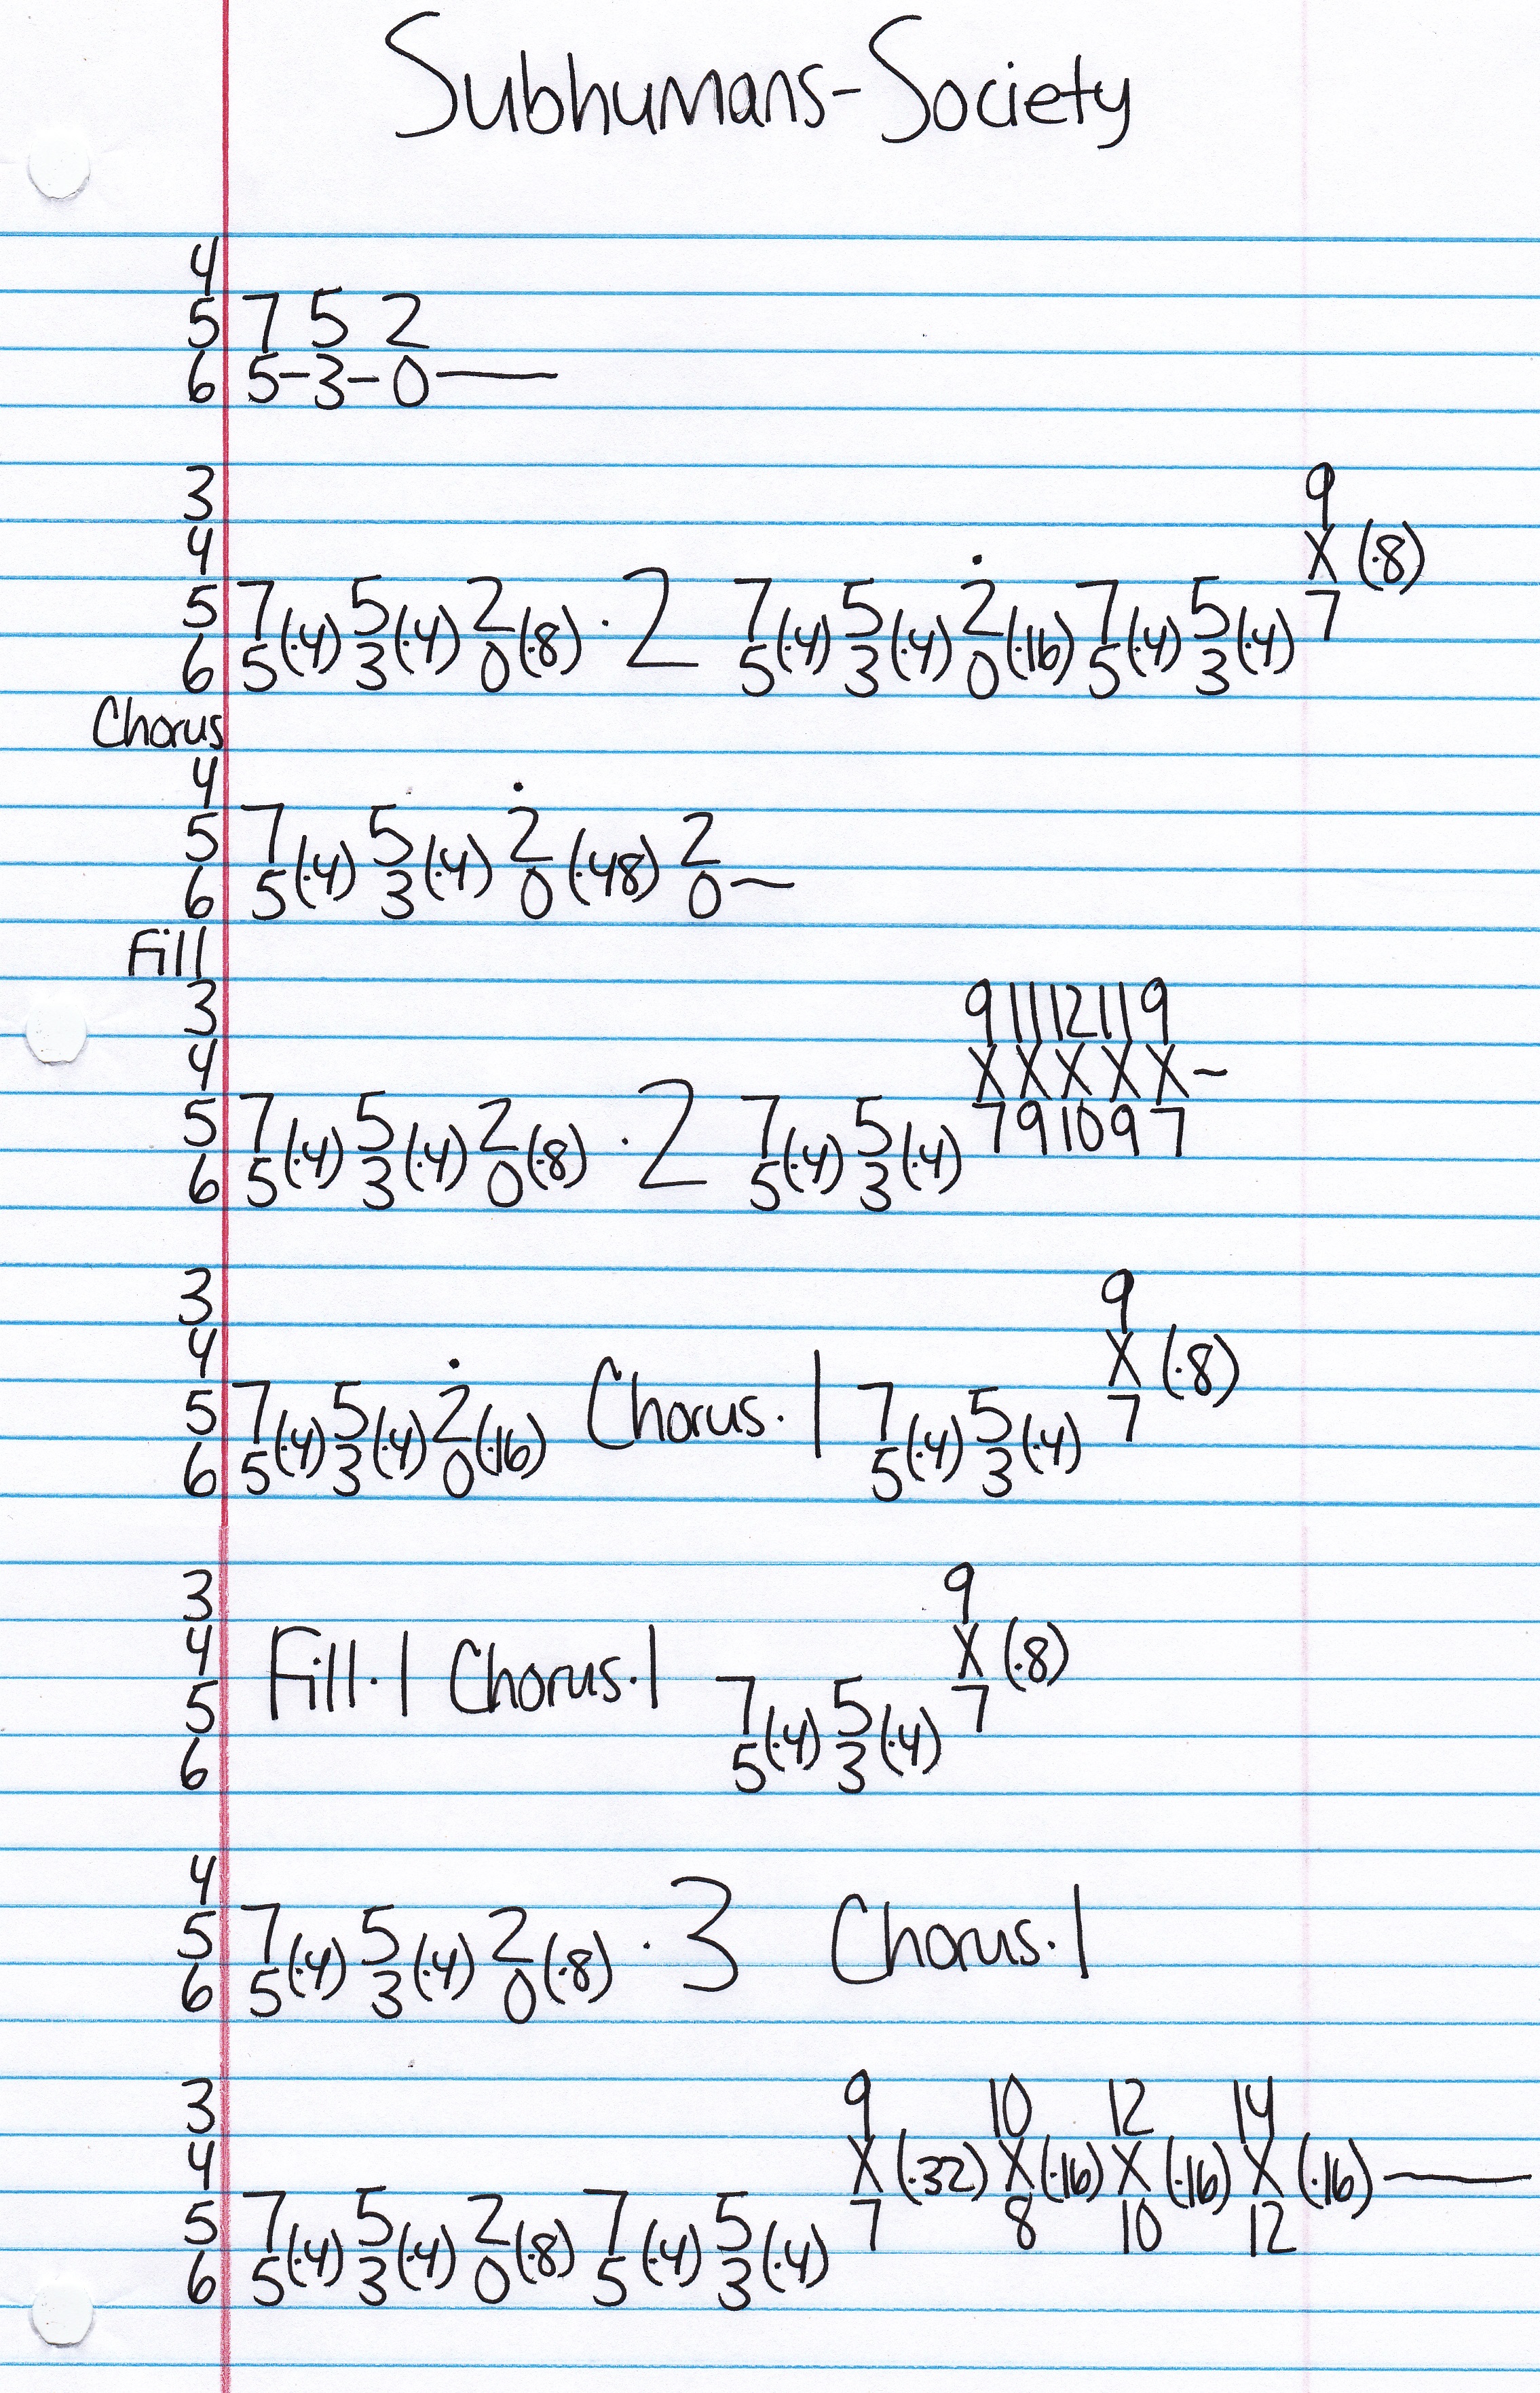 Subhumans-Society
4
5 7 5 2
6 5-3-0—
3 9
4 X (·8)
5 7 (·4) 5 (·4) 2 (·8) · 2 7 (·4) 5 (·4) 2̇ (·16) 7 (·4) 5 (·4) 7
6 5 3 0 5 3 0 5 3
Chorus
4
5 7 (·4) 5 (·4) 2̇ (·48) 2
6 5 3 0 0—
Fill
3 9 11 12 11 9
4 X X X X X-
5 7 (·4) 5 (·4) 2 (·8) · 2 7 (·4) 5 (·4) 7 9 10 9 7
6 5 3 0 5 3
3 9
4 X (·8)
5 7 (·4) 5 (·4) 2̇ (·16) Chorus·1 7 (·4) 5 (·4) 7
6 5 3 0 5 3
3 9
4 Fill·1 Chorus·1 X (·8)
5 7 (·4) 5 (·4) 7
6 5 3
4
5 7 (·4) 5 (·4) 2 (·8) · 3 Chorus·1
6 5 3 0
3 9 10 12 14
4 X (·32) X (·16) X (·16) X (·16)—
5 7 (·4) 5 (·4) 2 (·8) 7 (·4) 5 (·4) 7 8 10 12
6 5 3 0 5 3